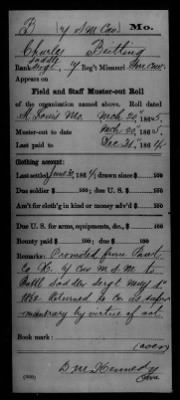 B | 7 S M Cav | Mo.
Charles Beitling
Saddle
Sergt., 7 Reg't Missouri S.M. Cav.
Appears on
Field and Staff Muster-out Roll
of the organization named above. Roll dated
St. Louis Mo. Mch 20, 1865.
Muster-out to date Mch 20, 1865.
Last paid to Dec 31, 1864.
Clothing account:
Last settled June 30, 1864; drawn since $ 100
Due soldier $ 100; due U. S. $ 100
Am't for cloth'g in kind or money adv'd $ 100
Due U. S. for arms, equipments, &c., $ 100
Bounty paid $ 100; due $ 100
Remarks: Promoted from Privt.
Co K. 7 Cav M S M to
Batt Saddler Sergt May 1st
186 Returned to Co. as super-
numerary by virtue of act
Book mark:
(over)
Kennedy
(339)